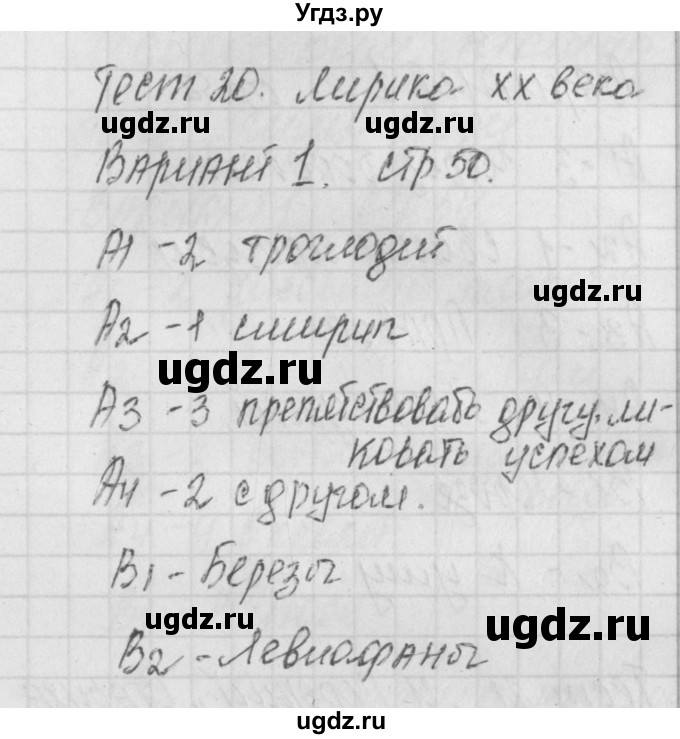 Угдз.ру
Тест 20. Лирика XX века
ugdz.ru ugdz.ru
Вариант 1. стр 50.
А1 - 2 троглодит
ugdz.ru
А2 - 1
ugdz.ru
А3 - 3 препятствовать другу, ли-
ковать успехом
А4 - 2 с другом.
В1 - Березы
ugdz.ru ugdz.ru
В2 - Левиафаны
ugdz.ru